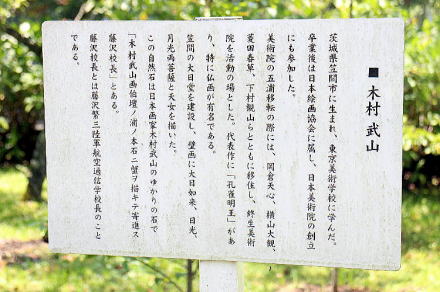 ■木村 武山
茨城県笠間市に生まれ、東京美術学校に学んだ。
卒業後は日本絵画協会に属し、日本美術院の創立
にも参加した。
美術院の五浦移転の際には、岡倉天心、横山大観、
菱田春草、下村観山らとともに移住し、終生美術
院を活動の場とした。代表作に「孔雀明王」があ
り、特に仏画が有名である。
笠間の大日堂を建設し、壁画に大日如来、日光、
月光両菩薩と天女を描いた。
この自然石は日本画家木村武山のゆかりの石で
「木村武山画伯壇ノ浦ノ本石ニ蟹ヲ描キテ寄進ス
藤沢校長」とある。
藤沢校長とは藤沢繁三陸軍航空通信学校長のこと
である。